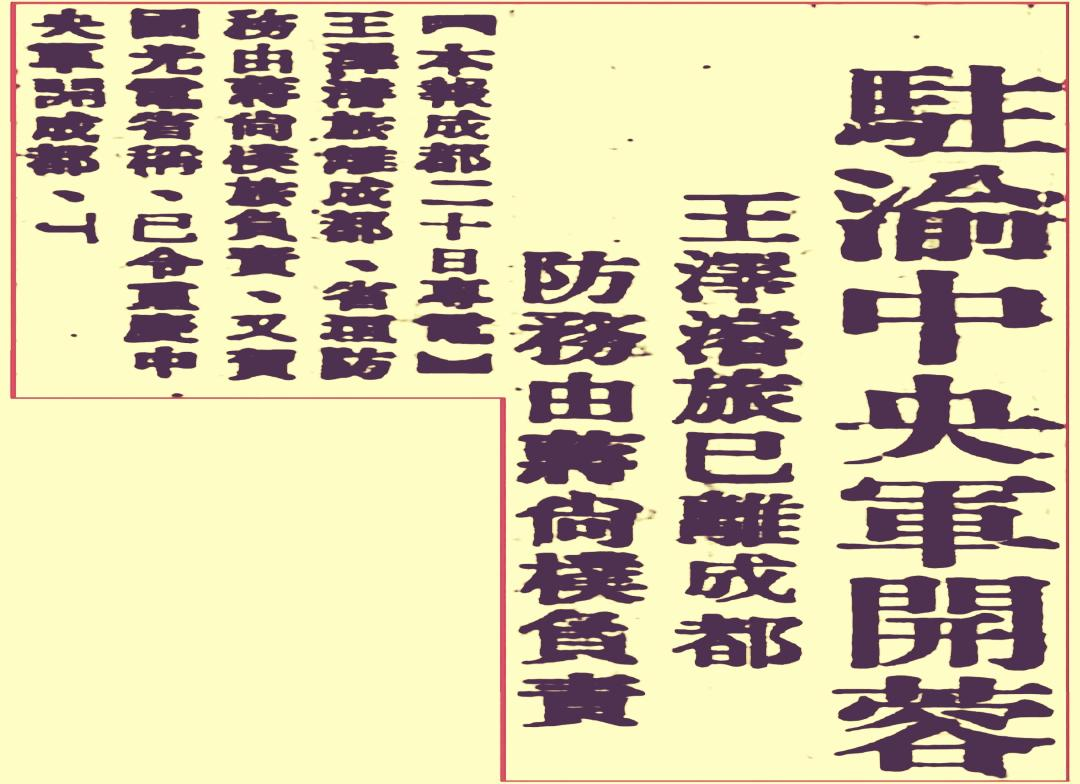 駐渝中央軍開蓉
王澤濬旅已離成都
防務由蔣尙樸負責
【本報成都二十日專電】
王澤濬旅離成都、省垣防
務由蔣尙樸旅負責、又賀
國光電省稱、已令重慶中
央軍開成都、」